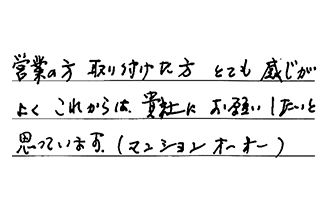 営業の方 取り付けた方 とても 感じが
よく これからは、貴社に お願い したいと
思っています。(マンションオーナー)